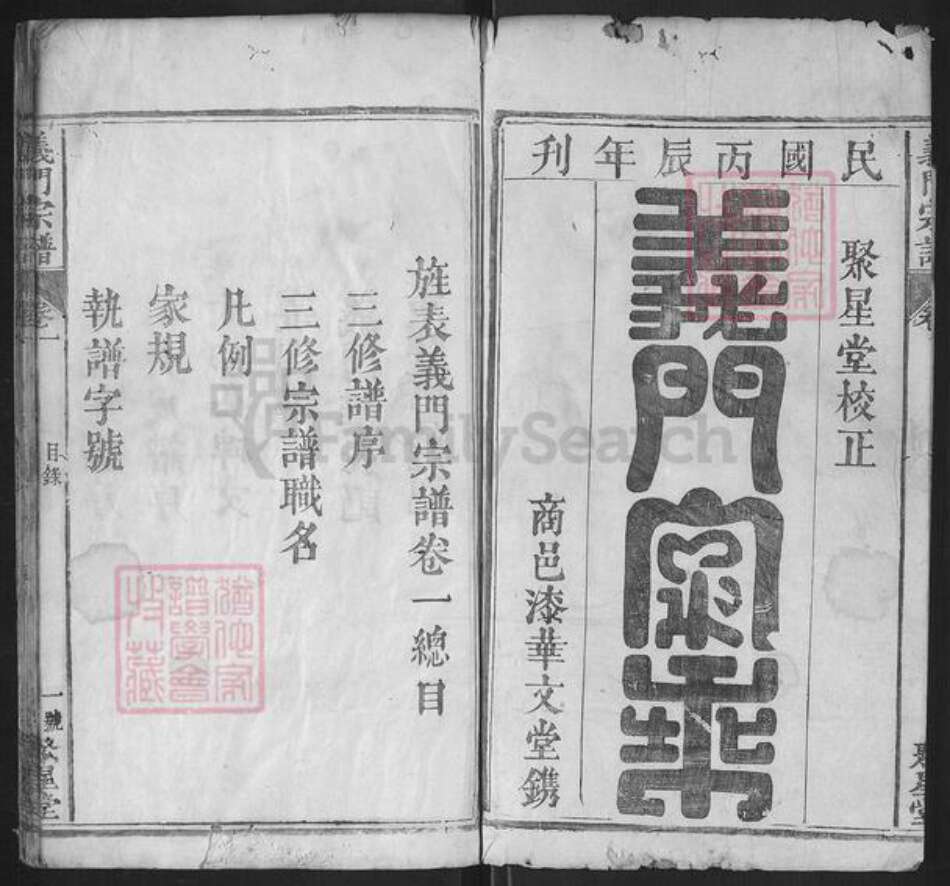 民國丙辰年刊
聚星堂校正
義門家乘
商邑漆華文堂鐫
旌表義門宗譜卷一總目
三修譜序
三修宗譜職名
凡例
家規
執譜字號
義門宗譜 卷一 目錄 一號 聚星堂
義門宗譜 卷 聚星堂
猶他家
譜學會
收藏
猶他家
譜學會
收藏
FamilySearch